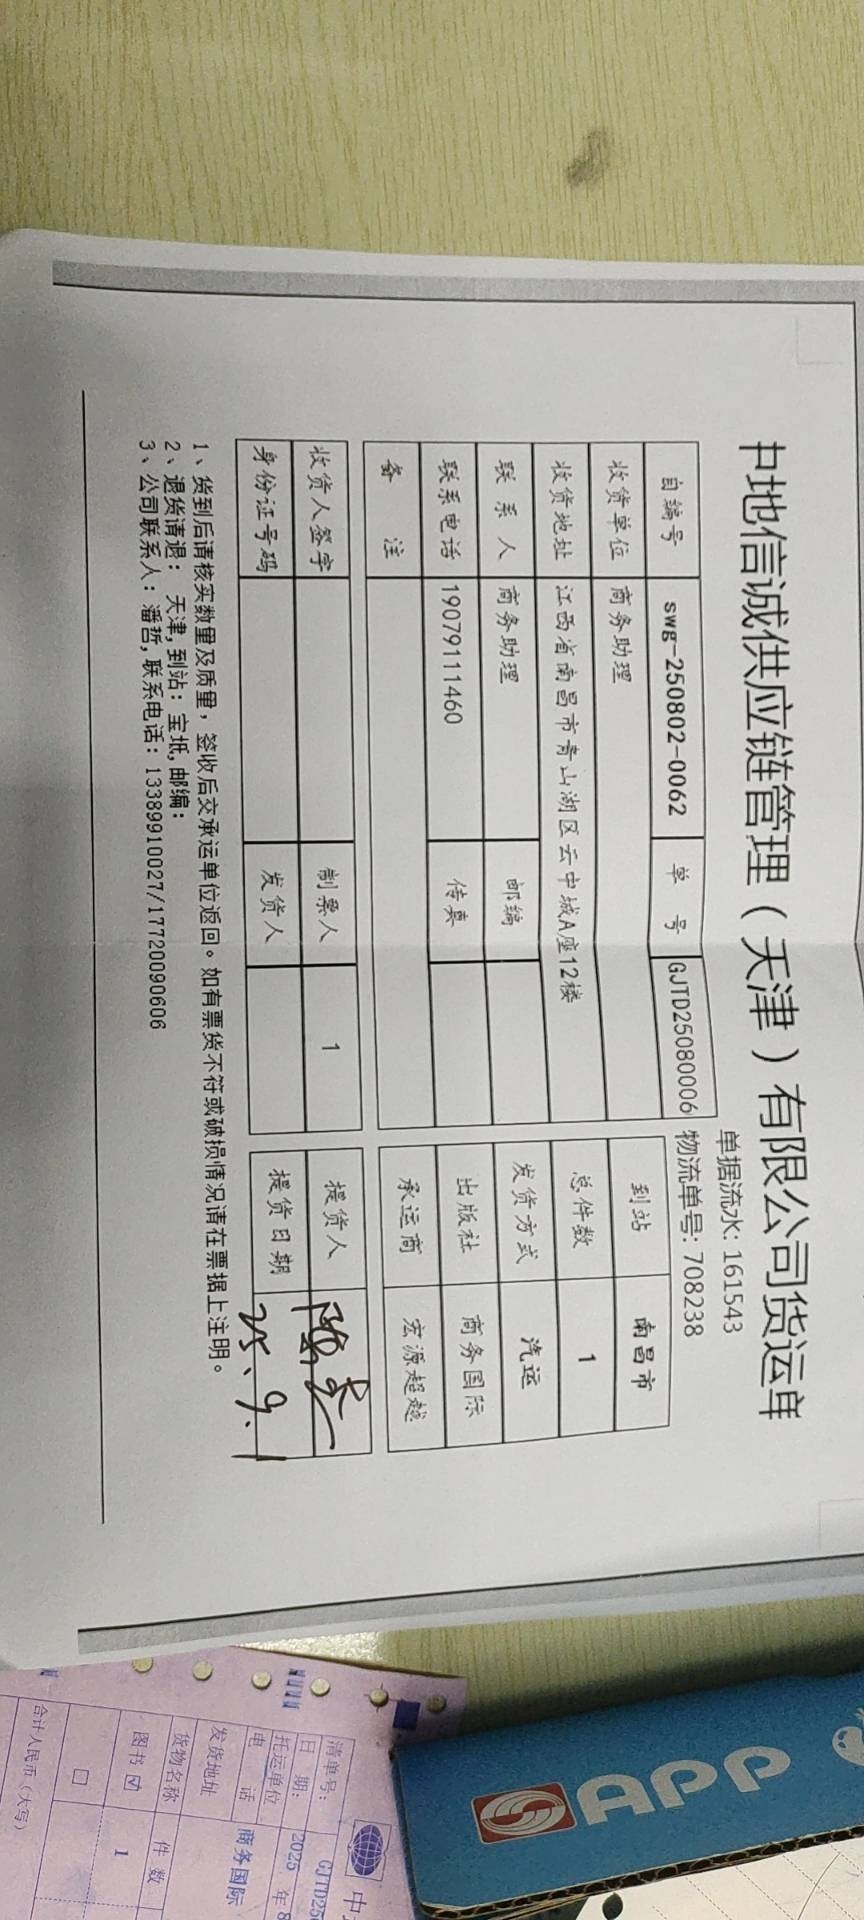 中地信诚供应链管理（天津）有限公司货运单
单据流水: 161543
物流单号: 708238
自编号 swg-250802-0062 单 号 GJTD25080006 到站 南昌市
收货单位 商务助理 总件数 1
收货地址 江西省南昌市青山湖区云中城A座12楼 发货方式 汽运
联 系 人 商务助理 邮编 出版社 商务国际
联系电话 19079111460 传真 承运商 宏源超越
备 注
收货人签字 制票人 1 提货人
身份证号码 发货人 提货日期 25.9.1
1、货到后请核实数量及质量，签收后交承运单位返回。如有票货不符或破损情况请在票据上注明。
2、退货请退：天津,到站：宝坻,邮编：
3、公司联系人：潘哲,联系电话：13389910027/17720090606
APP
中
清单号： GJTD25
日 期： 2025 年 8
托运单位 商务国际
电 话
发货地址
货物名称 件 数
图书 ☑ 1
□
合计人民币（大写）